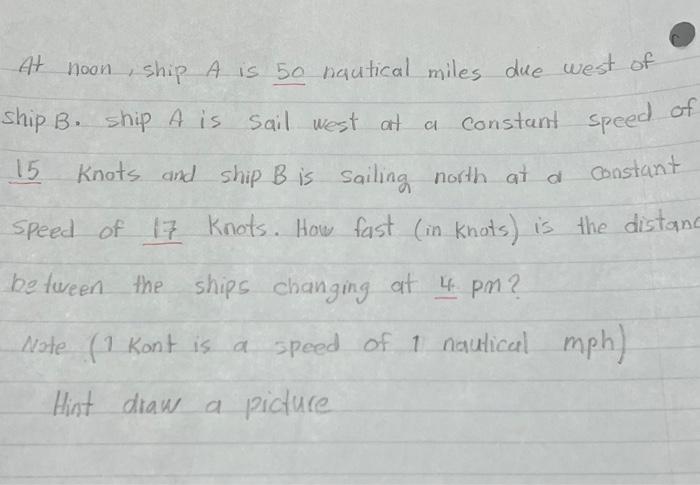 At noon, ship A is 50 nautical miles due west of
ship B. ship A is sail west at a constant speed of
15 Knots and ship B is sailing north at a constant
speed of 17 Knots. How fast (in knots) is the distanc
between the ships changing at 4 pm?
Note (1 Kont is a speed of 1 nautical mph)
Hint draw a picture